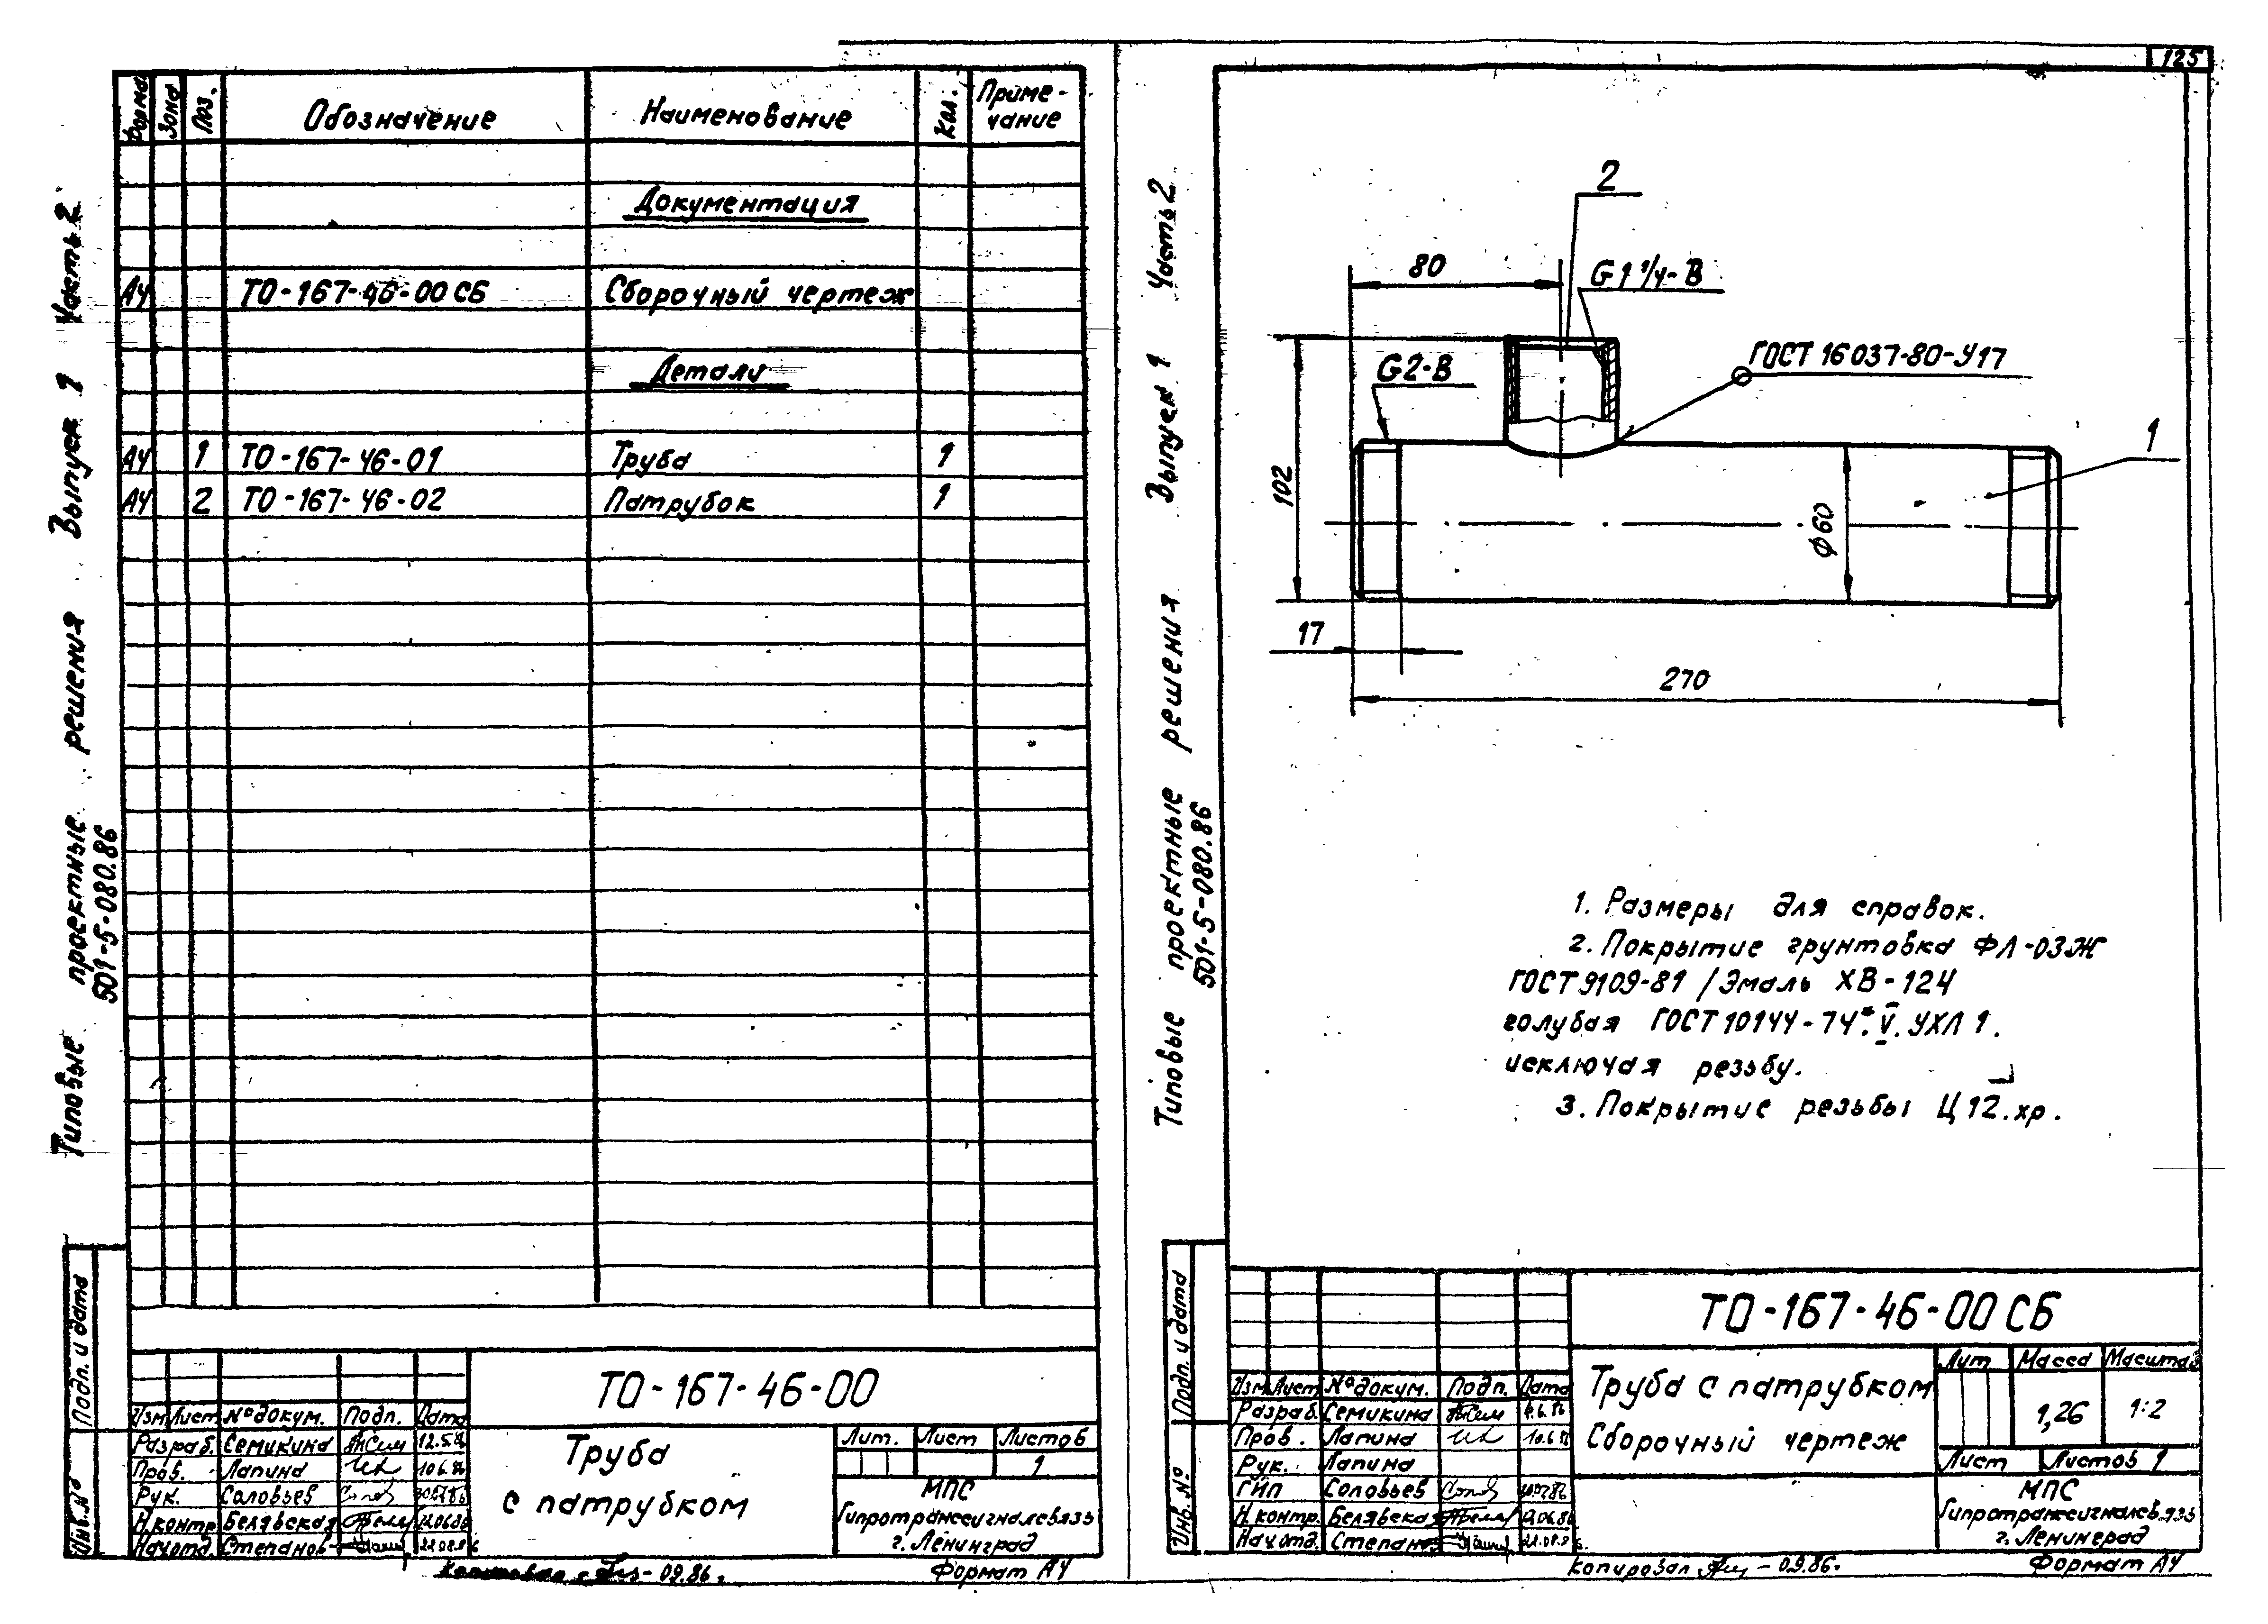 125
Типовые проектные решения Выпуск 1 Часть 2
501-5-080.86
Формат Зона Поз. Обозначение Наименование Кол. Приме-
чание
Документация
А4 ТО-167-46-00 СБ Сборочный чертеж
Детали
А4 1 ТО-167-46-01 Труба 1
А4 2 ТО-167-46-02 Патрубок 1
Подп. и дата
Инв. №
ТО-167-46-00
Изм Лист № докум. Подп. Дата
Разраб. Семикина 12.5.86
Пров. Лапина 10.6.86
Рук. Соловьев
Н.контр Белявская 12.06.86
Нач.отд. Степанов 22.08.86
Труба
с патрубком
Лит. Лист Листов
1
МПС
Гипротранссигналсвязь
г. Ленинград
Копировал 09.86г.
Формат А4
Типовые проектные решения Выпуск 1 Часть 2
501-5-080.86
2
80
G1 1/4-В
G2-В
ГОСТ 16037-80-У17
1
102
ф60
17
270
1. Размеры для справок.
2. Покрытие грунтовка ФЛ-03Ж
ГОСТ 9109-81 / Эмаль ХВ-124
голубая ГОСТ 10144-74*. V. УХЛ 1.
исключая резьбу.
3. Покрытие резьбы Ц12.хр.
Подп. и дата
Инв. №
ТО-167-46-00 СБ
Изм Лист № докум. Подп. Дата
Разраб. Семикина
Пров. Лапина 10.6.86
Рук. Лапина
ГИП Соловьев
Н.контр. Белявская 12.06.86
Нач.отд. Степанов 22.08.86
Труба с патрубком
Сборочный чертеж
Лит Масса Масштаб
1,26 1:2
Лист Листов 1
МПС
Гипротранссигналсвязь
г. Ленинград
Копировал 09.86г.
Формат А4